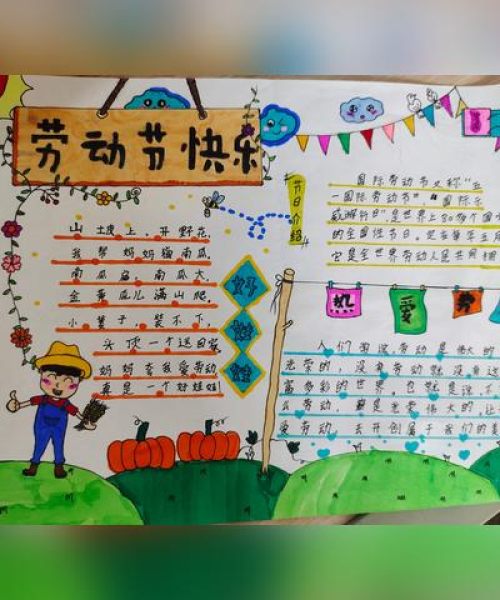 劳动节快乐
山坡上,开野花,
我帮妈妈摘南瓜
南瓜扁,南瓜大,
金黄瓜儿满山爬,
小篓子,装不下,
头顶一个送回家
妈妈夸我爱劳动
真是一个好娃娃
好
娃
娃
节日介绍
国际劳动节又称"五
一国际劳动节""国际示
威游行日"是世界上80多个国
的全国性节日。定在每年五月
它是全世界劳动人民共同拥
我
爱
劳
人们都说劳动是伟大的
光荣的,没有劳动就没有这
富多彩的世界,
劳动,
爱劳动,去开创属于我们的美